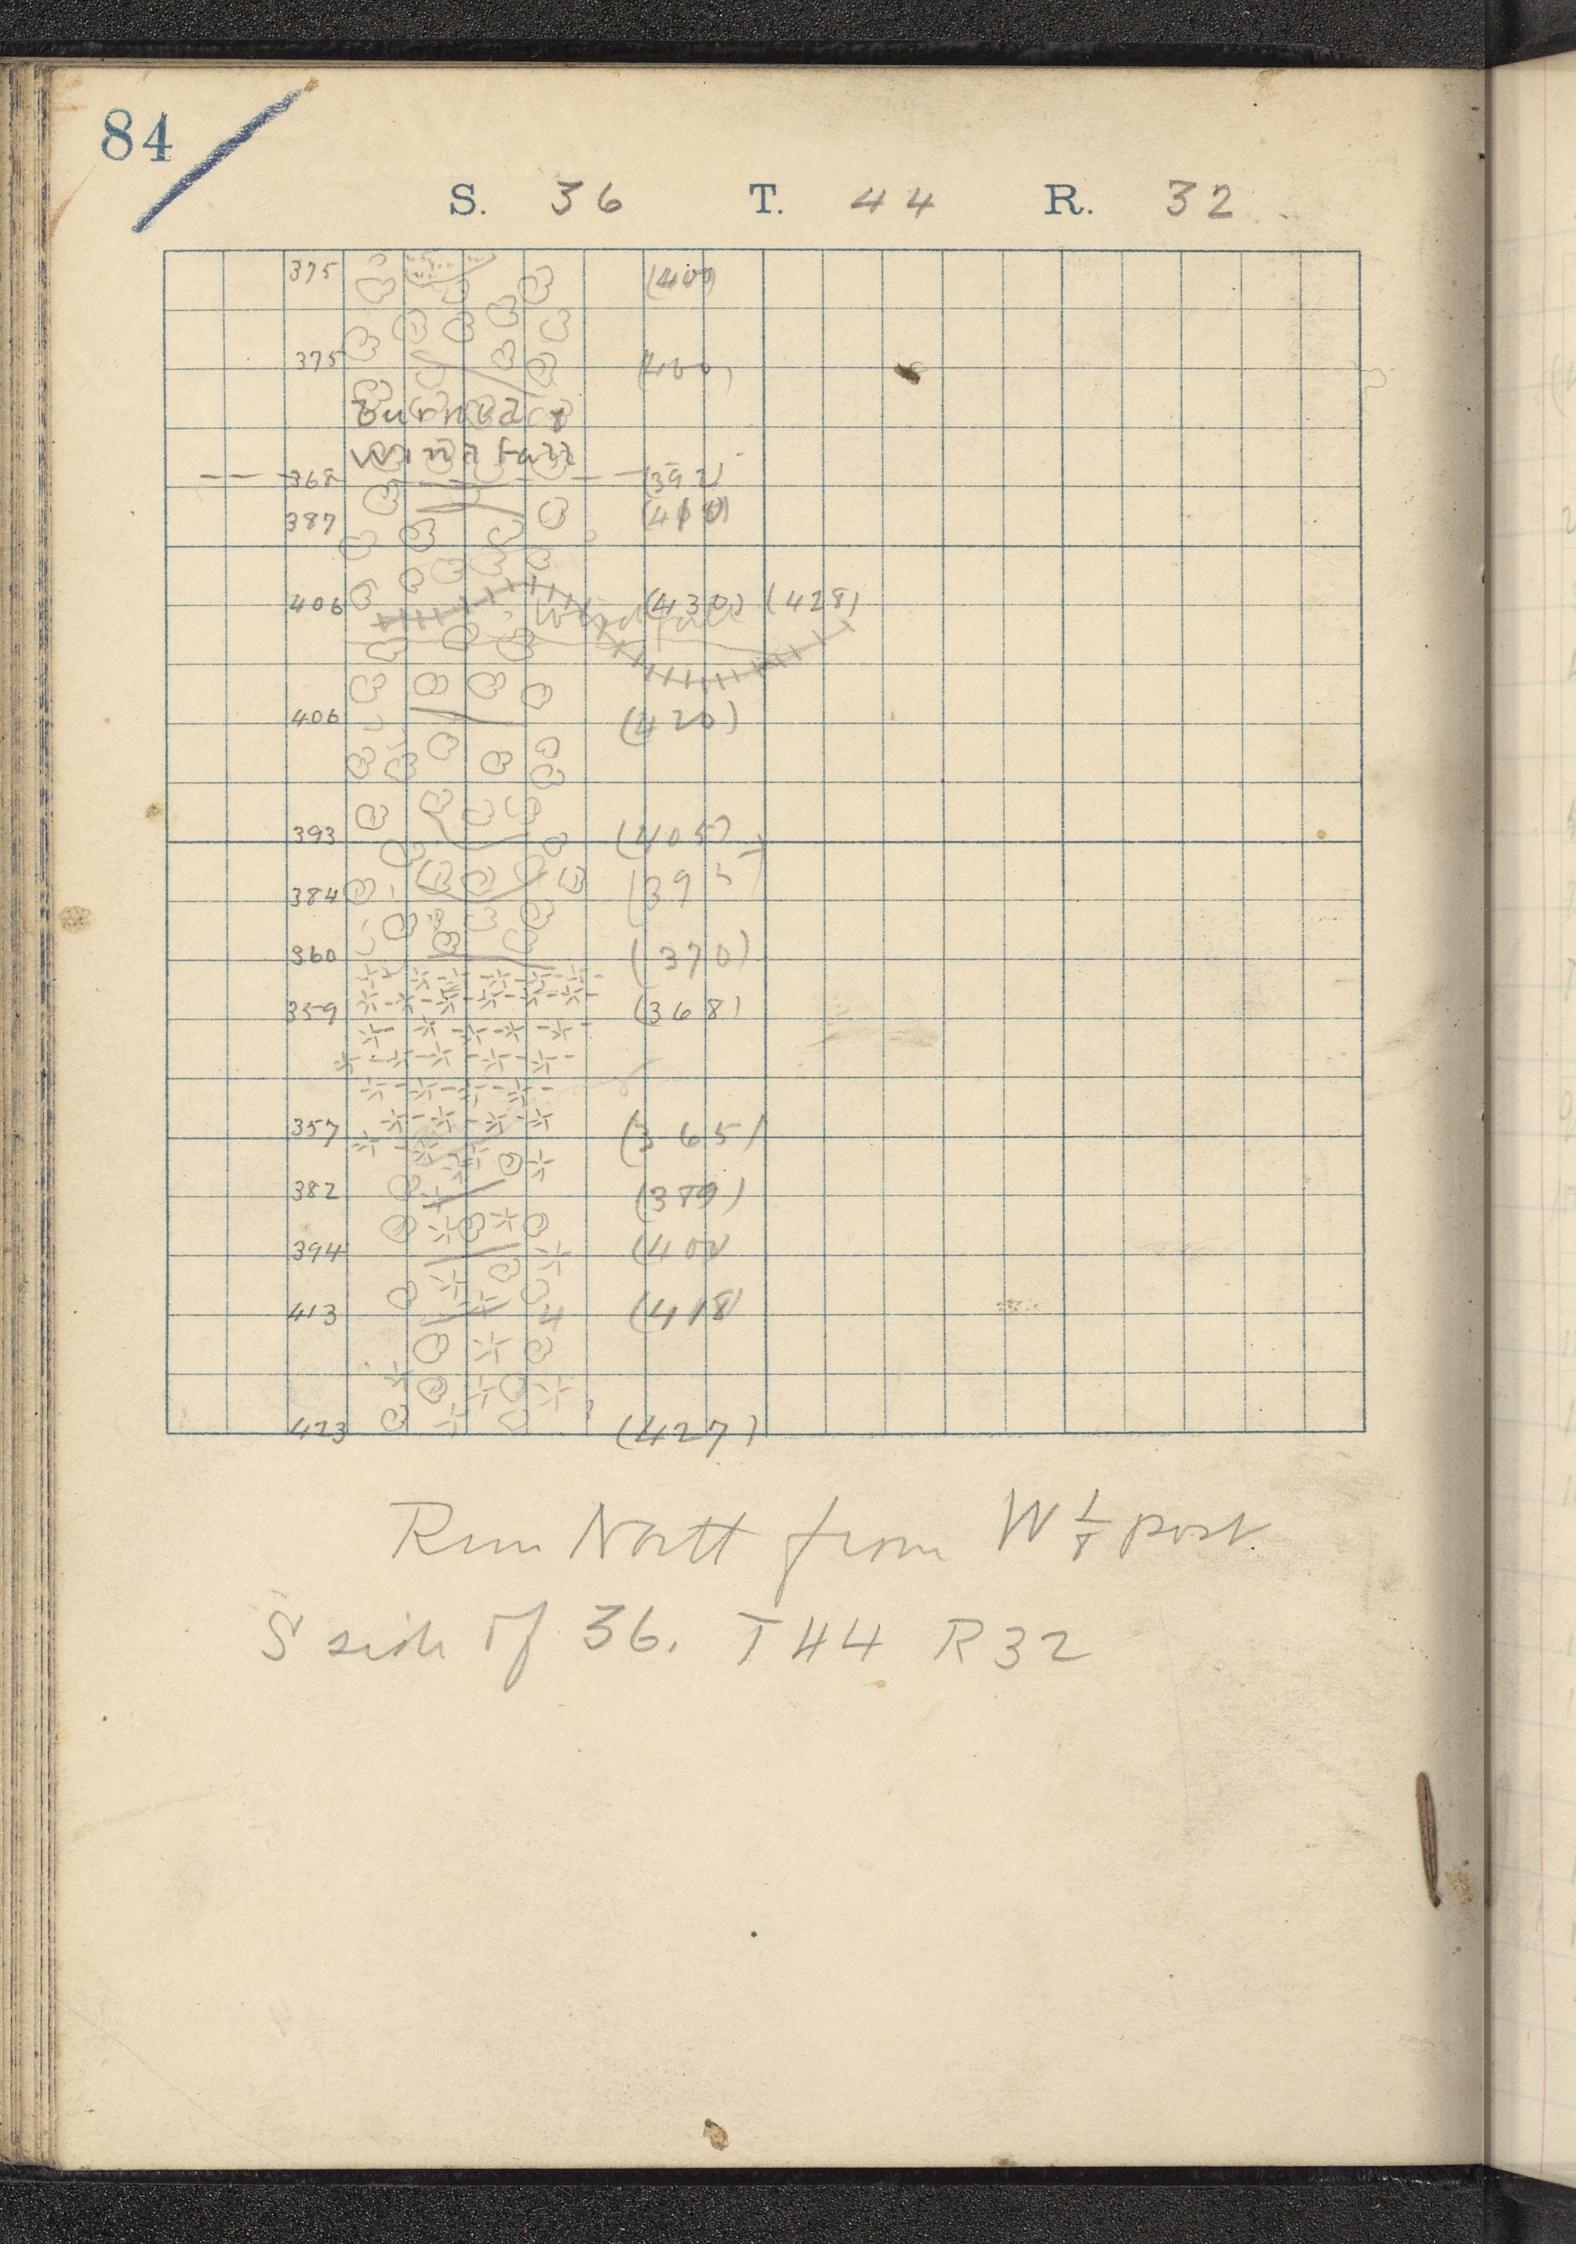 84
S. 36 T. 44 R. 32
375 (400)
375 (400)
Burned &
Wind fall
368 (392)
387 (410)
406 Wind fall (430) (428)
406 (420)
393 (405)
384 (395)
360 (370)
359 (368)
357 (365)
382 (389)
394 (402)
413 4 (418)
423 (427)
Run North from W 1/8 post
S side of 36. T44 R32